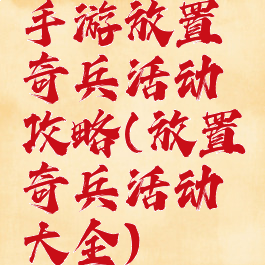 手游放置
奇兵活动
攻略(放置
奇兵活动
大全)